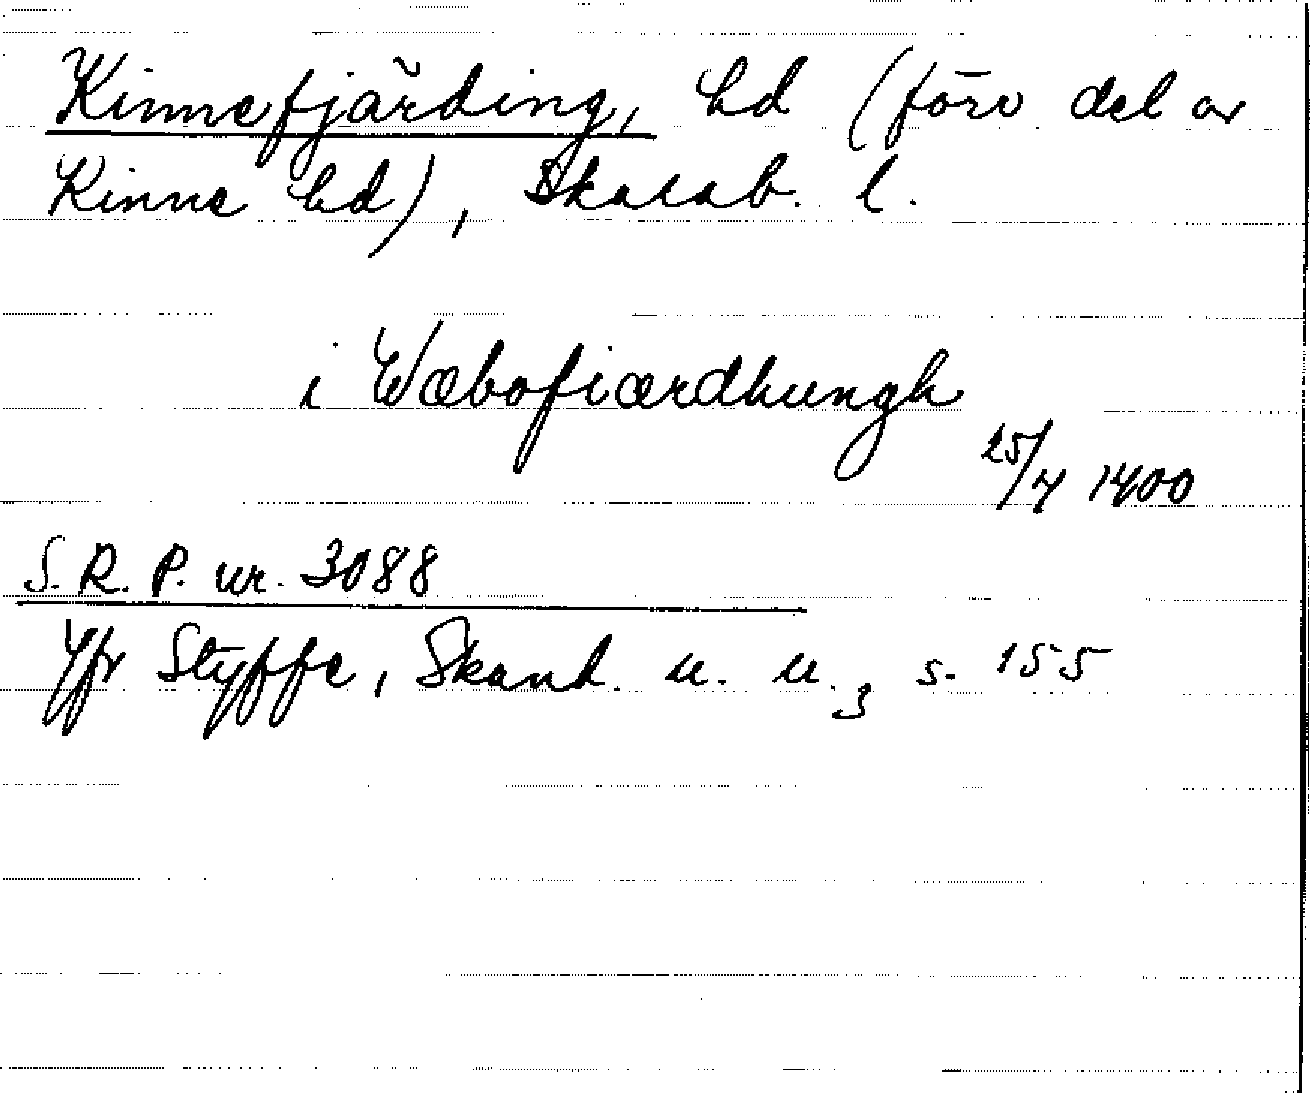 Kinnefjärding, hd (förv del av
Kinne hd), Skarab. l.
i Wæbofiærdhungh
25/4 1400
S. R. P. nr. 3088
Jfr Styffe, Skand. u. u.3 s. 155